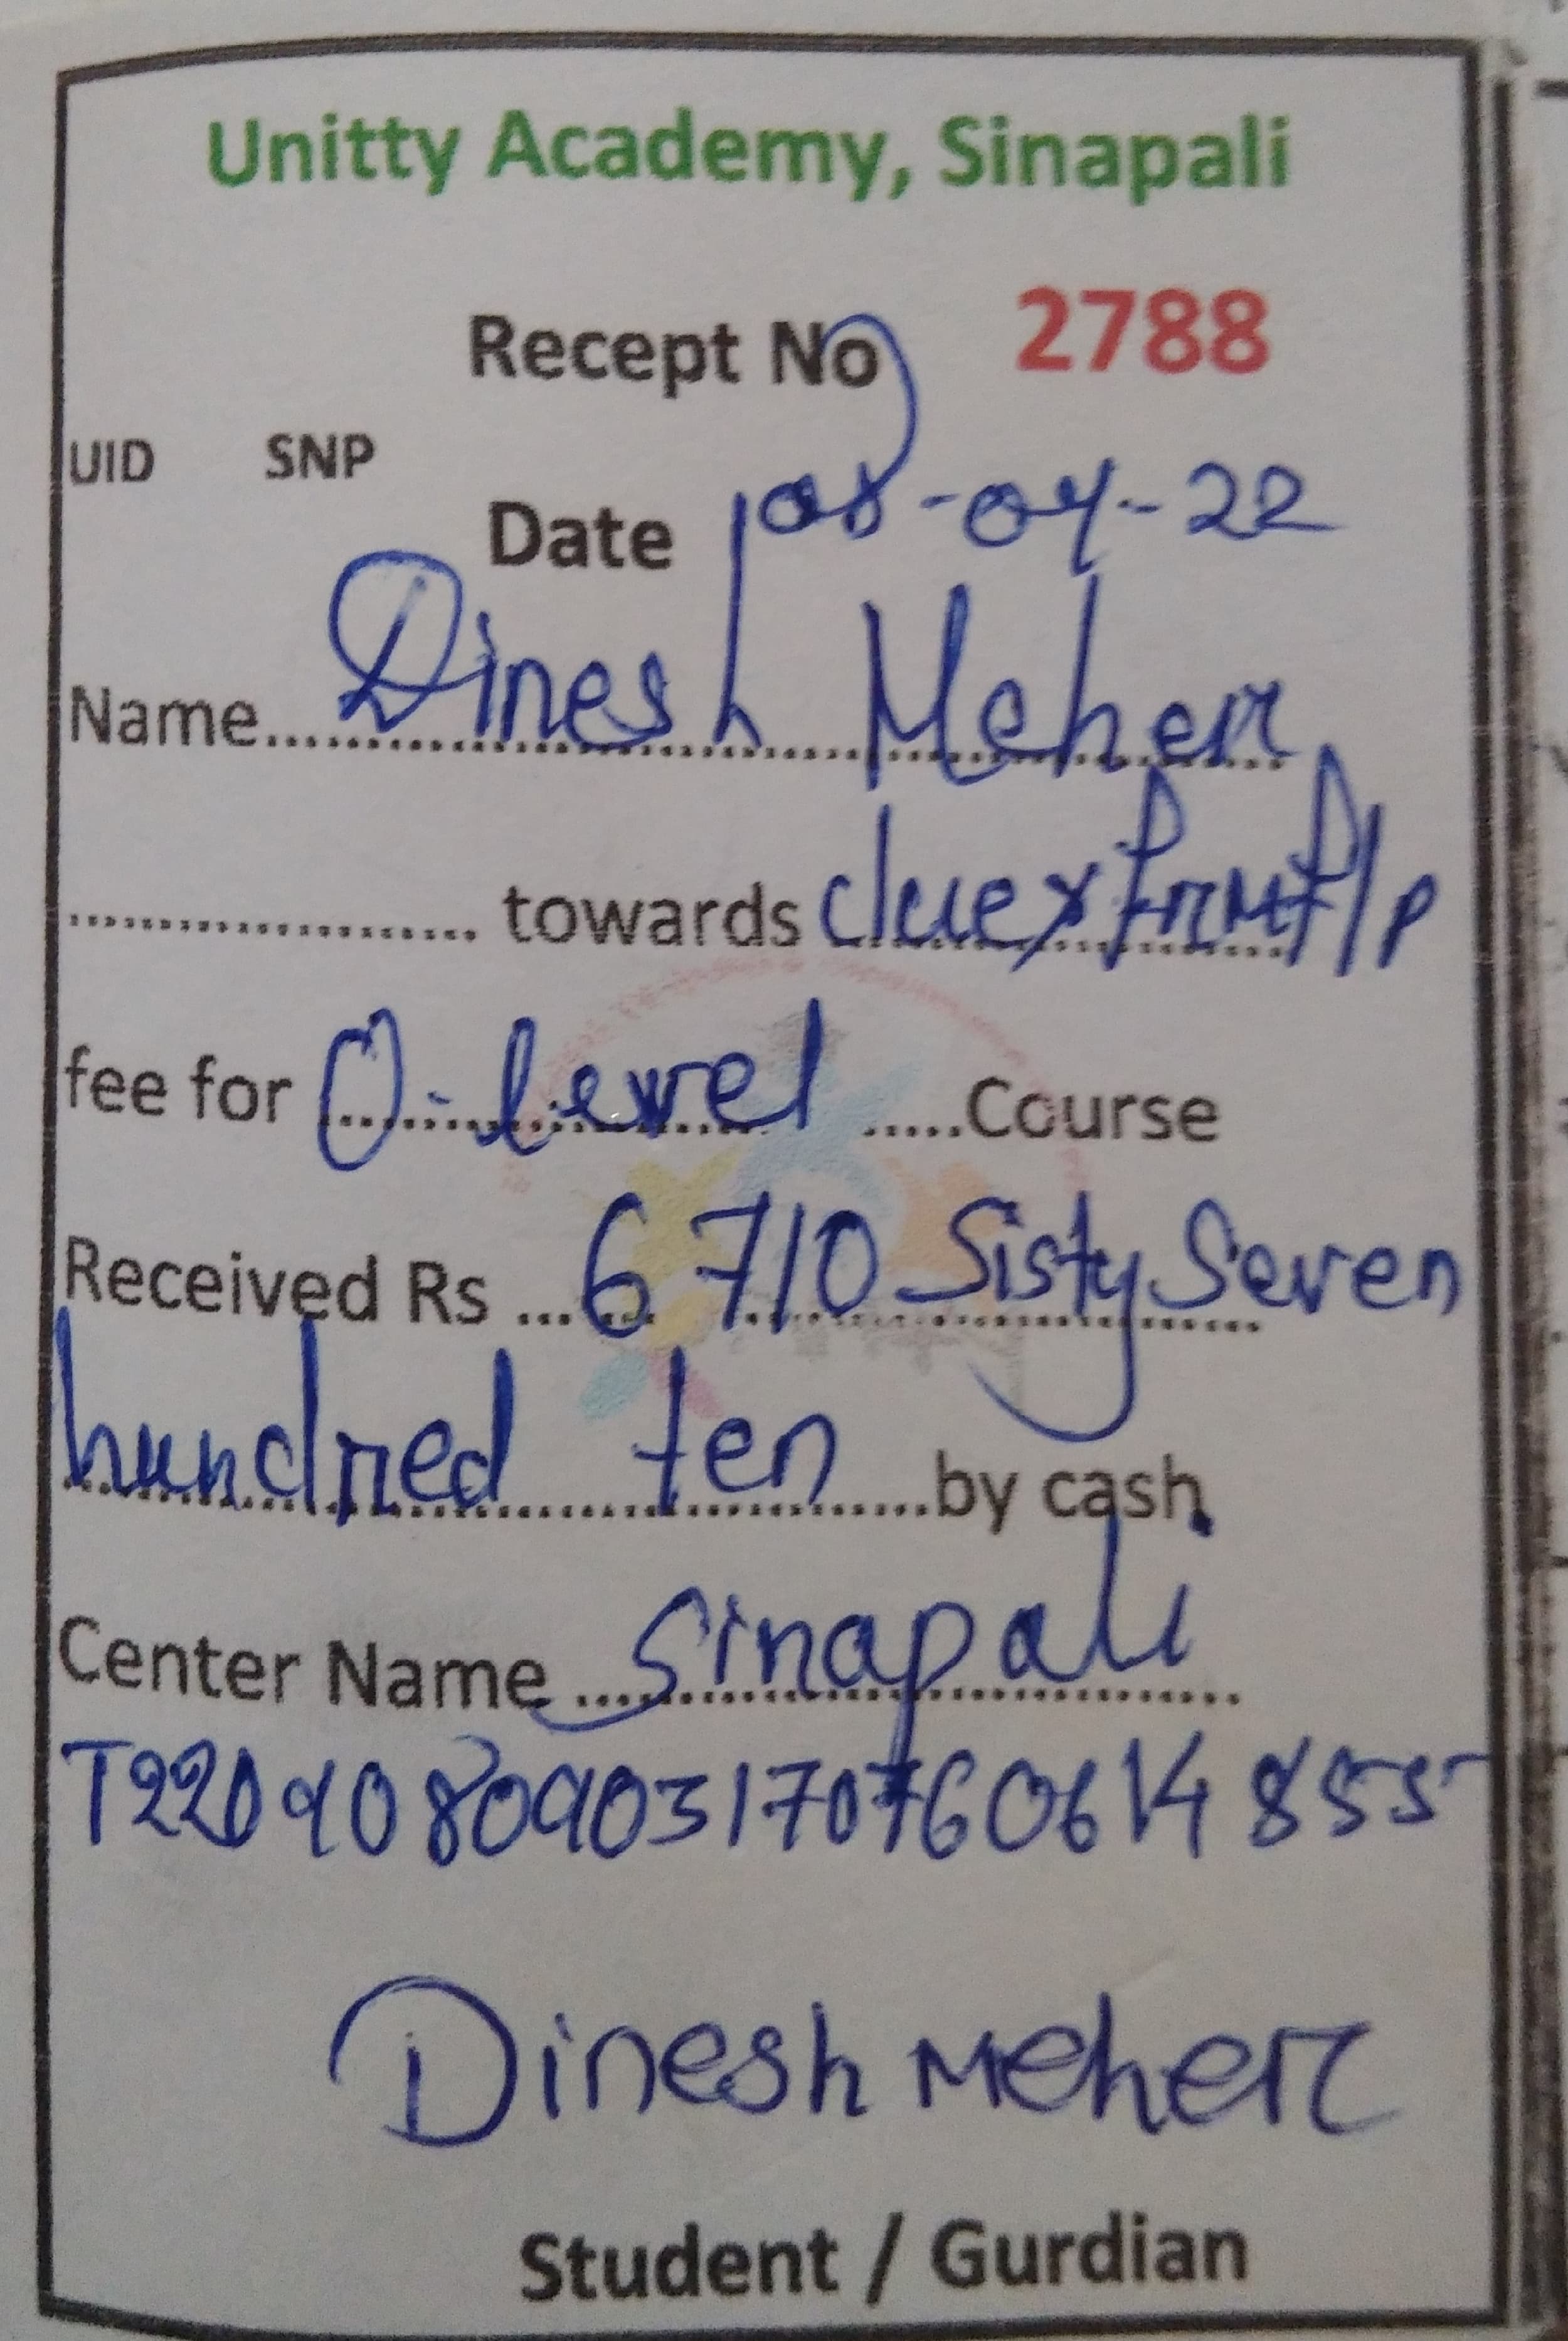 Unitty Academy, Sinapali
Recept No 2788
UID SNP
Date 08-04-22
Name Dinesh Meher
towards
fee for O-level Course
Received Rs 6710 Sisty Seven
hundred ten by cash
Center Name Sinapali
Dinesh Meher
Student / Gurdian